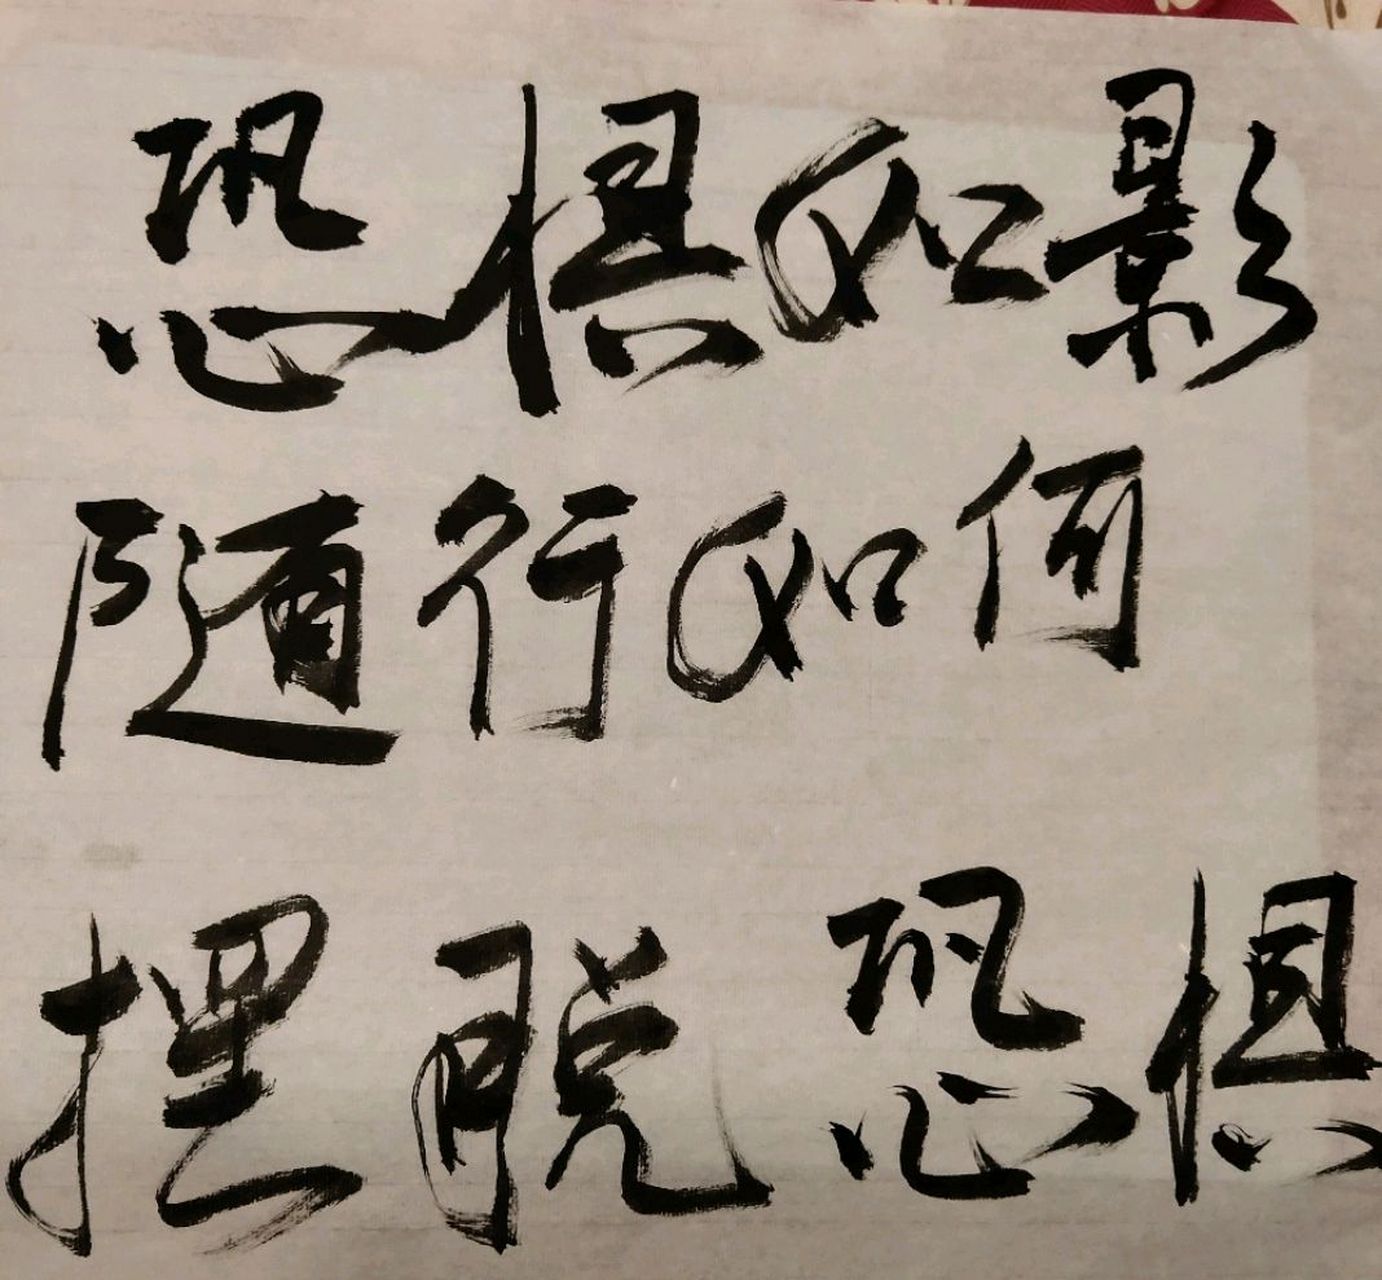 恐惧如影
随行如何
摆脱恐惧